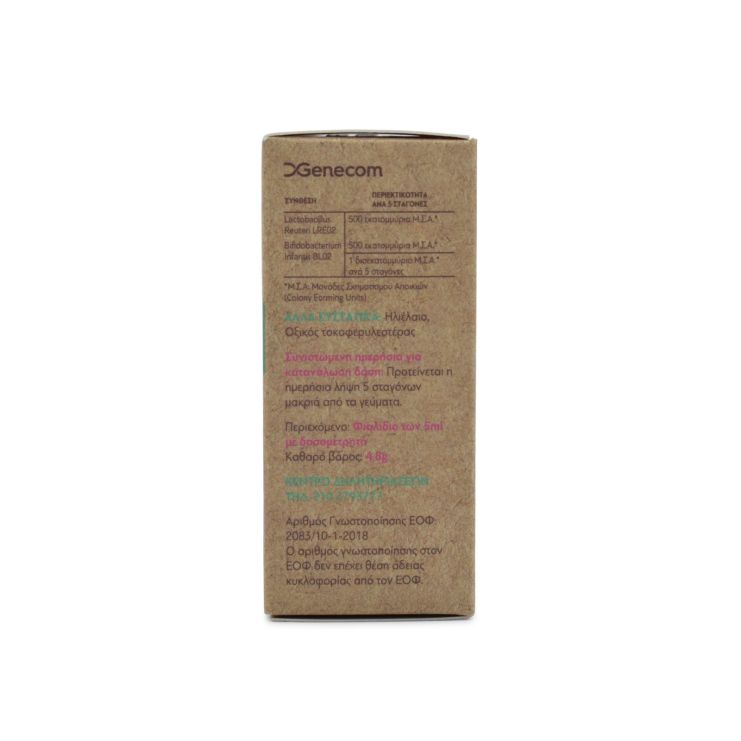 Genecom
ΣΥΝΘΕΣΗ
ΠΕΡΙΕΚΤΙΚΟΤΗΤΑ
ΑΝΑ 5 ΣΤΑΓΟΝΕΣ
Lactobacillus
Reuteri LRE02
500 εκατομμύρια Μ.Σ.Α.*
Bifidobacterium
Infantis BL02
500 εκατομμύρια Μ.Σ.Α.*
1 δισεκατομμύριο Μ.Σ.Α.*
ανά 5 σταγόνες
*Μ.Σ.Α: Μονάδες Σχηματισμού Αποικιών
(Colony Forming Units)
ΑΛΛΑ ΣΥΣΤΑΤΙΚΑ: Ηλιέλαιο,
Οξικός τοκοφερυλεστέρας
Συνιστώμενη ημερήσια για
κατανάλωση δόση: Προτείνεται η
ημερήσια λήψη 5 σταγόνων
μακριά από τα γεύματα.
Περιεχόμενο: Φιαλίδιο των 5ml
με δοσομετρητή
Καθαρό βάρος: 4,8g
ΚΕΝΤΡΟ ΔΗΛΗΤΗΡΙΑΣΕΩΝ
ΤΗΛ. 210 7793777
Αριθμός Γνωστοποίησης ΕΟΦ:
2083/10-1-2018
Ο αριθμός γνωστοποίησης στον
ΕΟΦ δεν επέχει θέση άδειας
κυκλοφορίας από τον ΕΟΦ.